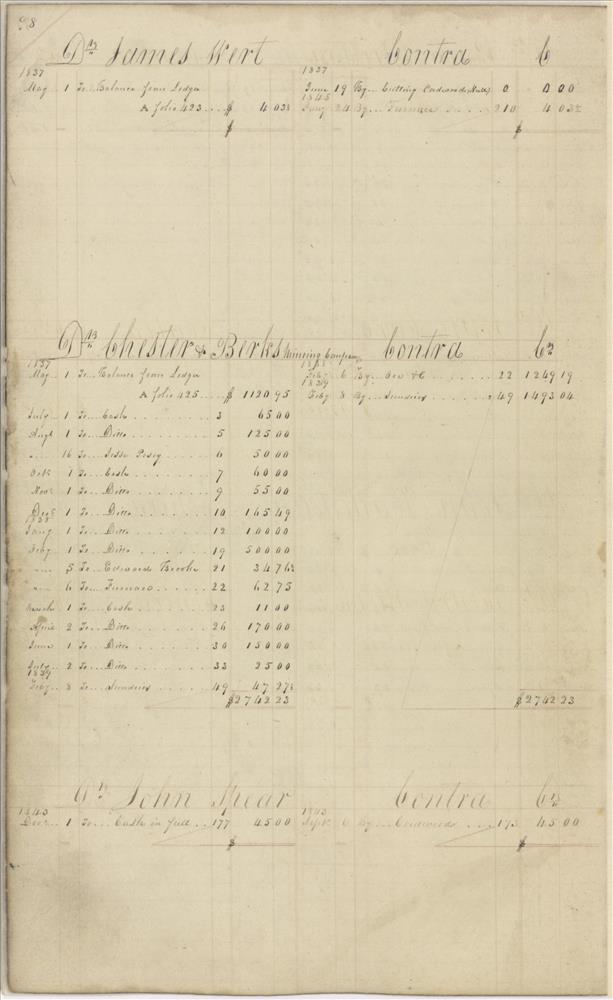 98
Dr James Wert Contra C
1837 1837
May 1 To Balance from Ledger June 19 By Cutting Cordwood (Null) 0 0 00
A folio 423 $ 4 03½ 1845 Jany 24 By Furnace 210 4 03½
$ $
Dr Chester & Berks Mining Company Contra Cr
1837
May 1 To Balance from Ledger Feby 6 By Ore &C 22 1249 19
A folio 425 $ 1120 95 1839 Feby 8 By Sundries 49 1493 04
July 1 To Cash 3 65 00
Augt 1 To Ditto 5 125 00
" 16 To Jesse 6 50 00
Octr 1 To Cash 7 60 00
Novr 1 To Ditto 9 55 00
Decr 1 To Ditto 10 165 49
1838
Jany 1 To Ditto 12 100 00
Feby 1 To Ditto 19 500 00
" 5 To Edward Brooke 21 34 76½
" 6 To Furnace 22 62 75
March 1 To Cash 23 11 00
April 2 To Ditto 26 170 00
June 1 To Ditto 30 150 00
July 2 To Ditto 33 25 00
1839
Feby 8 To Sundries 49 47 27½
$2742 23 $2742 23
Dr John Spear Contra Cr
1843 1843
Decr 1 To Cash in full 177 45 00 Sept 6 By Cordwood 173 45 00
$ $